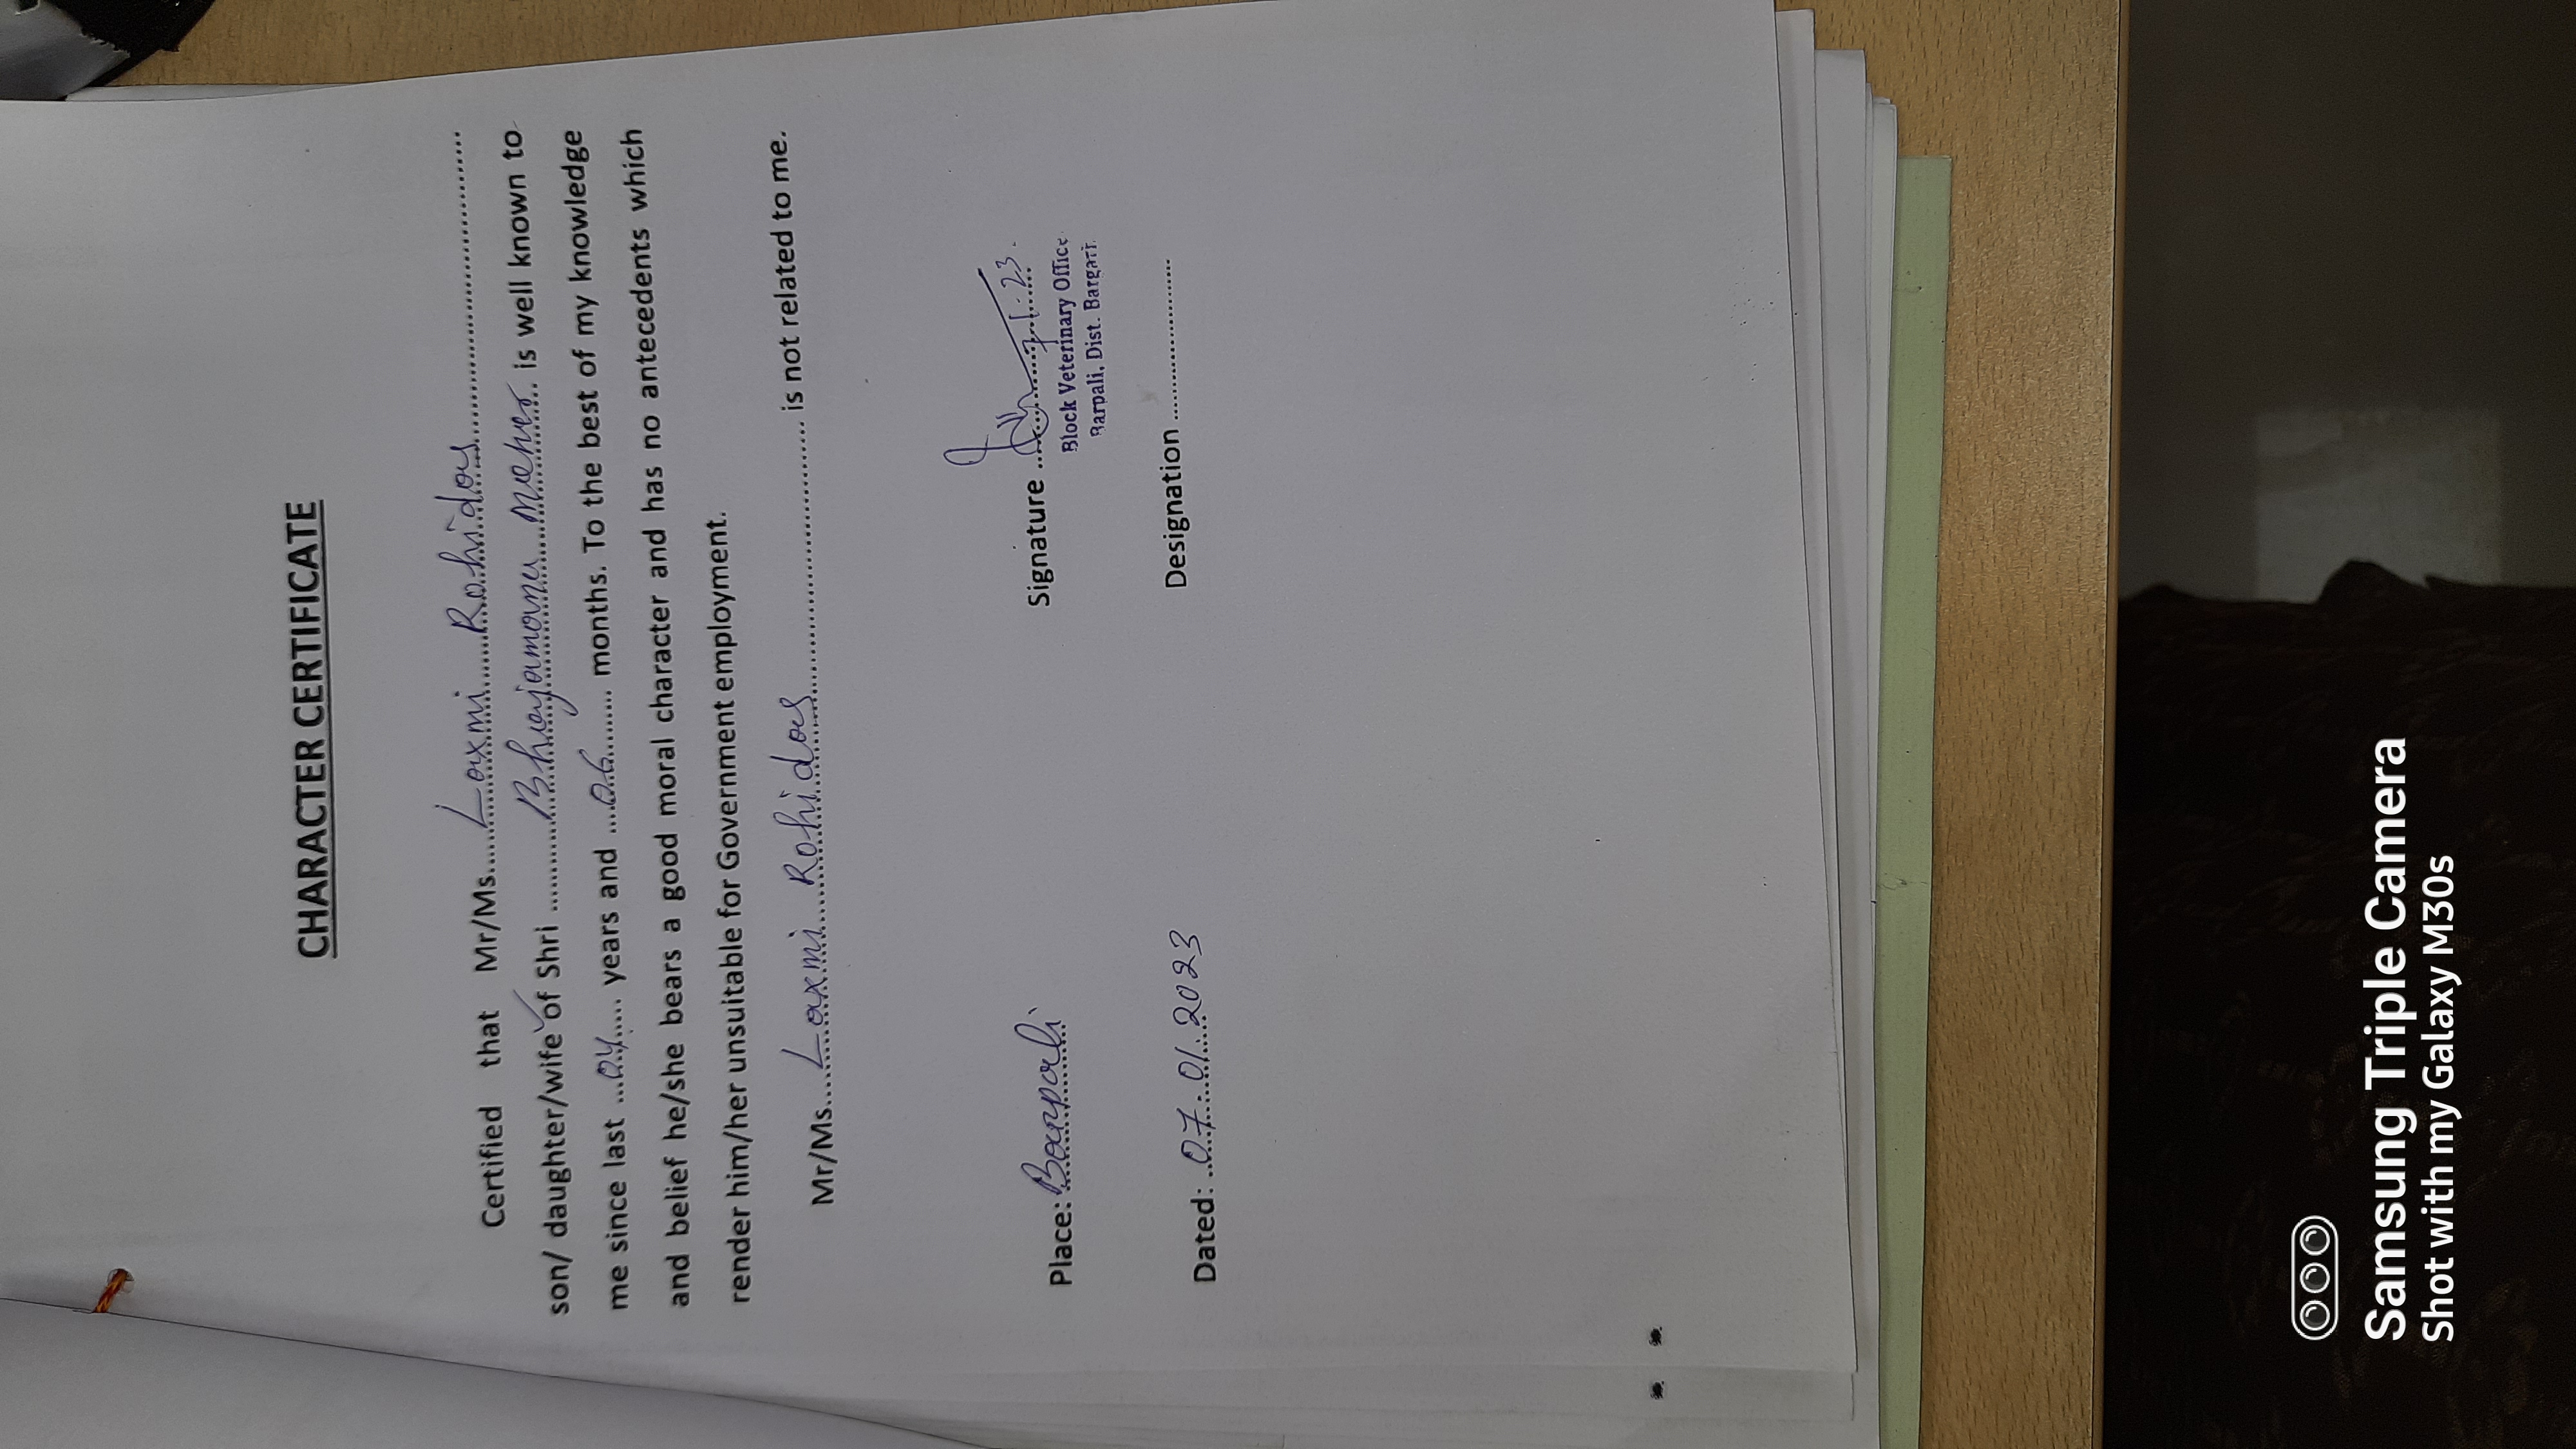 CHARACTER CERTIFICATE
Certified that Mr/Ms.....Laxmi Rohidas..........
son/ daughter/wife of Shri ..........Bhajamana Meher.. is well known to
me since last ...04..... years and ....06......... months. To the best of my knowledge
and belief he/she bears a good moral character and has no antecedents which
render him/her unsuitable for Government employment.
Mr/Ms.....Laxmi Rohidas.......... is not related to me.
Place: Barpali
Signature .......... 7.1.23.
Block Veterinary Office
Barpali, Dist. Bargarh
Dated: ..07.01.2023
Designation ........................
Samsung Triple Camera
Shot with my Galaxy M30s